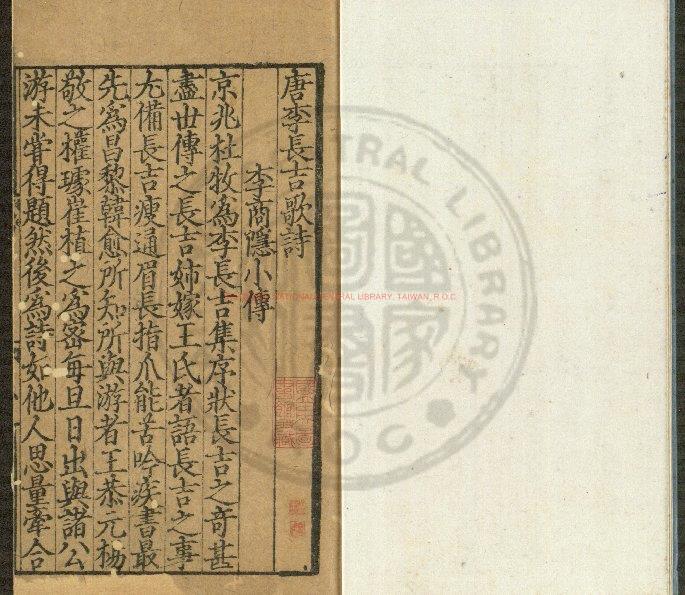 唐李長吉歌詩
李商隱小傳
京兆杜牧為李長吉集序狀長吉之奇甚
盡世傳之長吉姉嫁王氏者語長吉之事
尤備長吉瘦通眉長指爪能苦吟疾書最
先為昌黎韓愈所知所與游者王恭元楊
敬之權璩崔植之為密每旦日出與諸公
游未甞得題然後為詩如他人思量牽合
NATIONAL CENTRAL LIBRARY, TAIWAN, R.O.C.
CENTRAL LIBRARY
ROC
國家圖